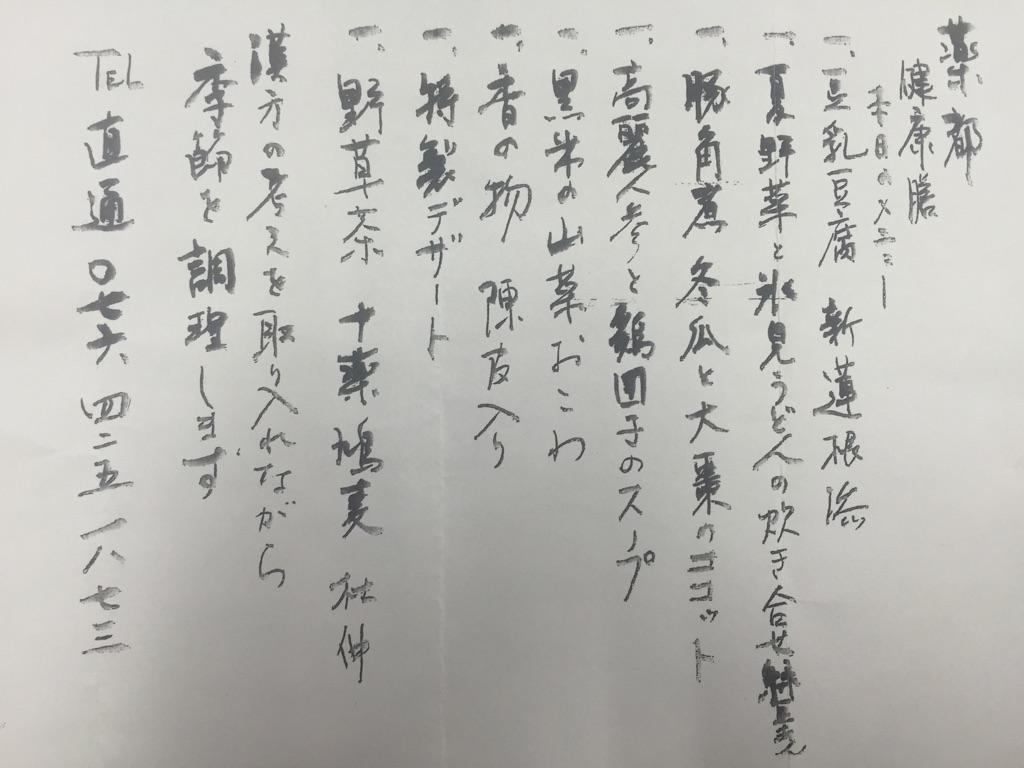 薬都
健康膳
本日のメニュー
一、豆乳豆腐 新蓮根添
一、夏野菜と氷見うどんの炊き合せ
一、豚角煮 冬瓜と大棗のココット
一、高麗人参と鶏団子のスープ
一、黒米の山菜おこわ
一、香の物 陳皮入り
一、特製デザート
一、野草茶 十薬 鳩麦 杜仲
漢方の考えを取り入れながら
季節を調理します
TEL 直通 〇七六 四二五 一八七三